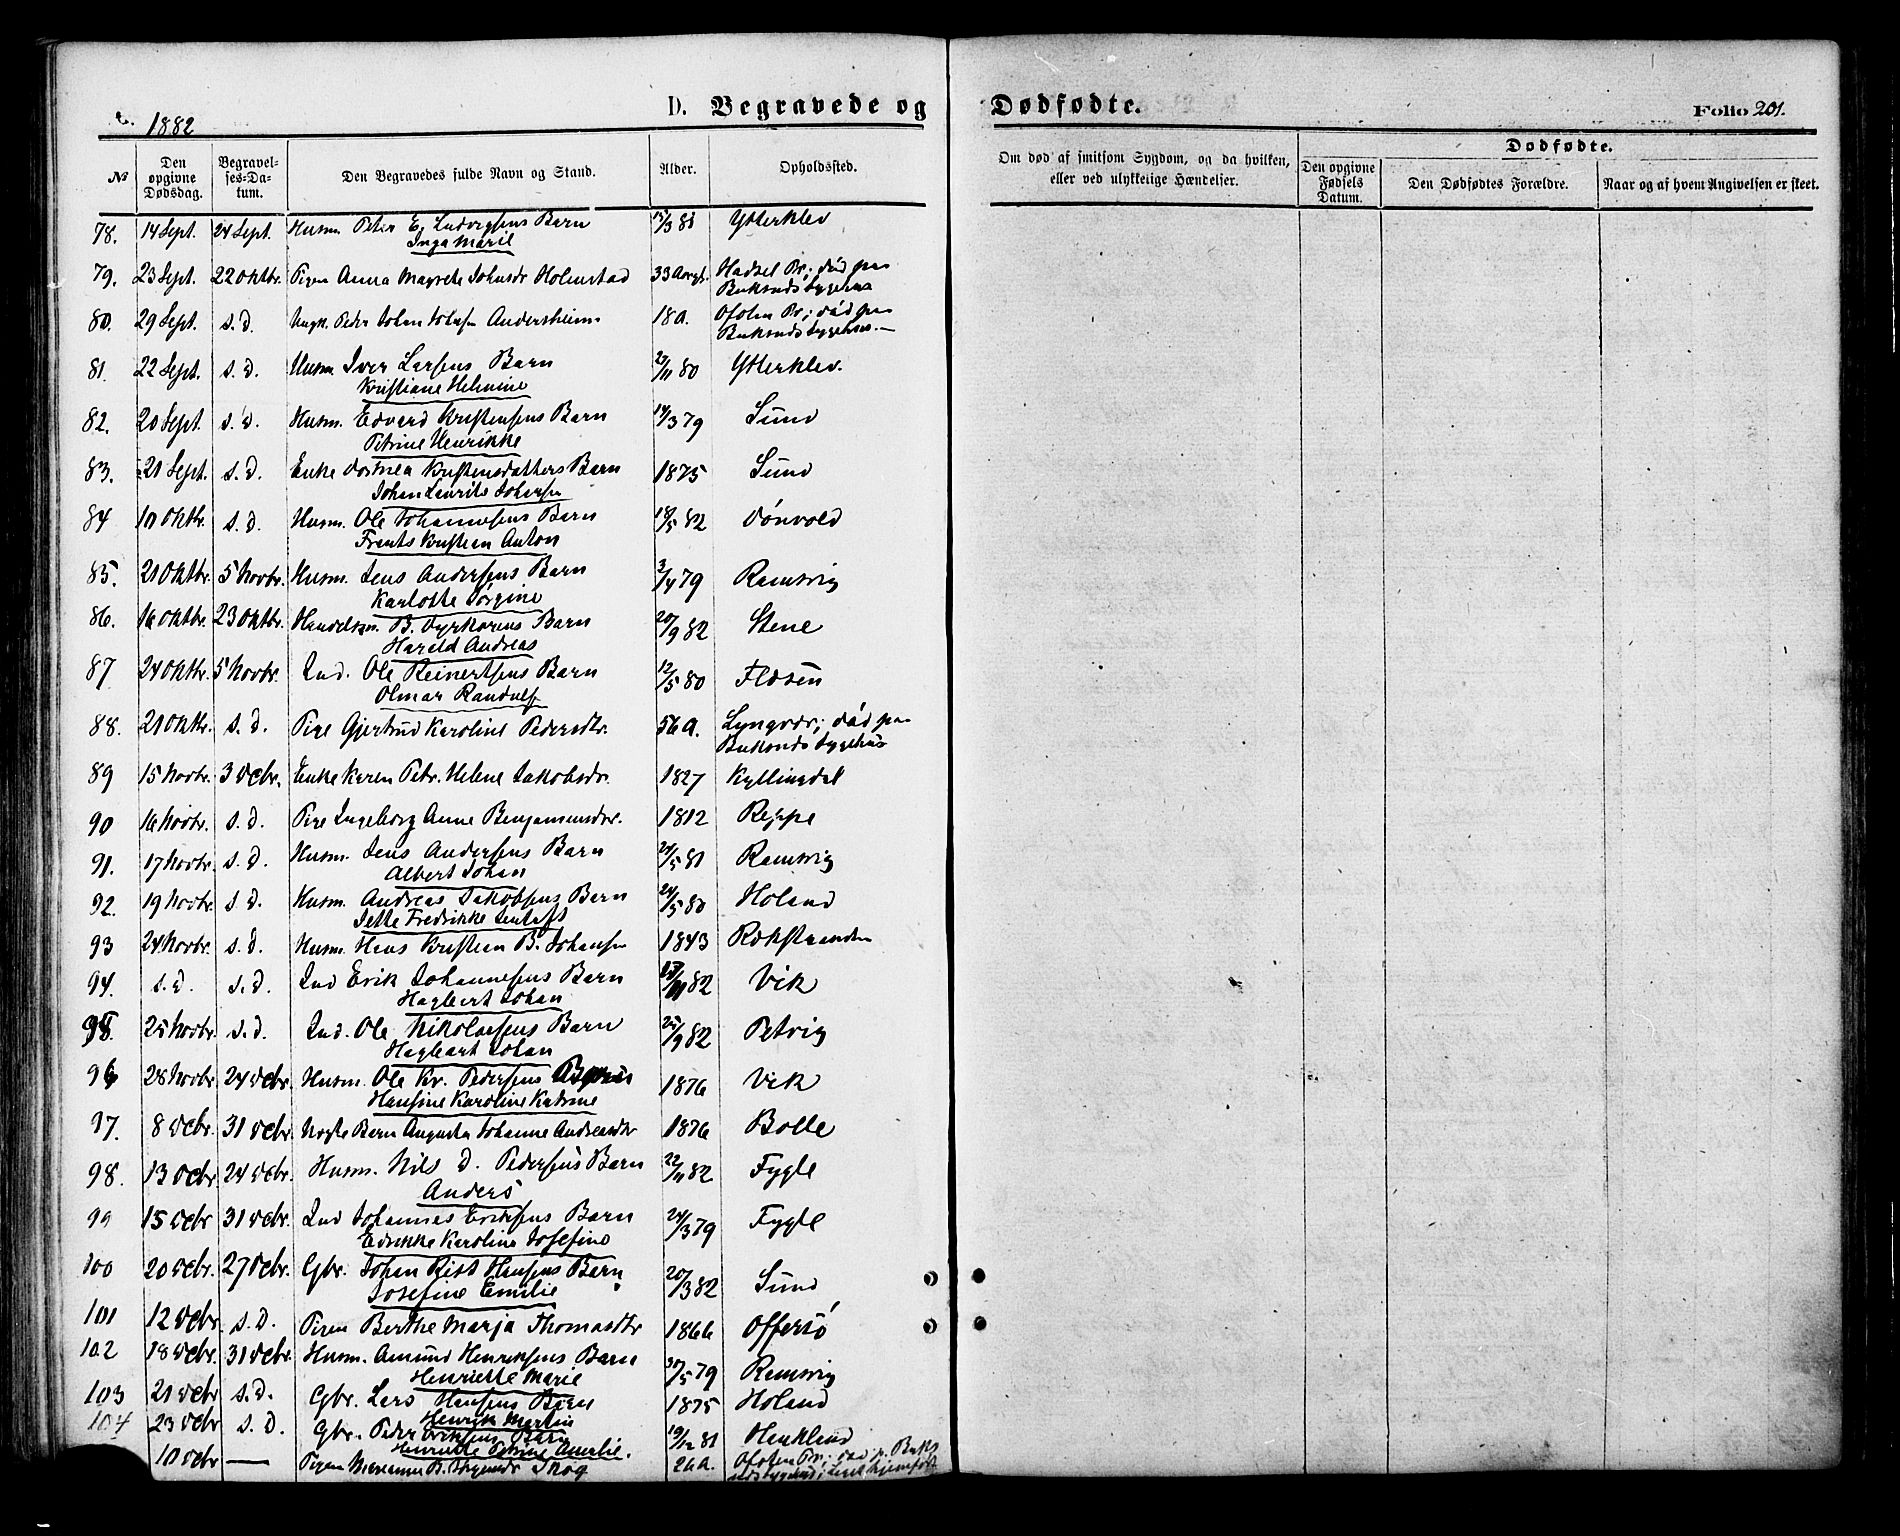 1882
D. Begravede og Dødfødte.
Folio 201.
№ Den opgivne Dødsdag. Begravelses-Datum. Den Begravedes fulde Navn og Stand. Alder. Opholdssted. Om død af smitsom Sygdom, og da hvilken, eller ved ulykkelige Hændelser. Dødfødte. Den opgivne Fødsels Datum. Den Dødfødtes Forældre. Naar og af hvem Angivelsen er skeet.
78. 14 Sept. 24 Sept. Husm. Peter E. Ludvigsens Barn 81 Ytterklev
Inga Marie
79. 23 Sept. 22 Oktbr. Pigen Anna Magrete Johnsdr Holmstad 33 Hadsel Pr.; død paa
Buksnds sygehus
80. 29 Sept. s. d. Ungk. Peder Johan Andersheim 18 a. Ofoten Pr; død paa
Buksnds sygehus.
81. 22 Sept. s. d. Husm. Iver Larsens Barn 80 Ytterklev.
Kristiane Helmine
82. 20 Sept. s. d. Husm. Edvard Kristensens Barn 14/3 79 Sund
Petrine Henrikke
83. 21 Sept. s. d. Enke Kristensdatters Barn 1875 Sund
Johan Laurits Johansen
84 10 Oktbr. s. d. Husm. Ole Johannesens Barn 18/5 82
Frants Kristian Anton
85. 21 Oktbr. 5 Novbr. Husm. Jens Andersens Barn 3/4 79 Ramsvig
Karlotte Jørgine
86. 16 Oktbr. 23 Oktbr. Handelsm. B. Dyrkorens Barn 20/9 82 Stene
Harald Andreas
87. 24 Oktbr. 5 Novbr. Ind. Ole Reinertsens Barn 12/5 80 Flosen
Olmar Randulf
88. 21 Oktbr. s. d. Pige Gjertrud Karoline Pedersdtr. 56 a. Lyngvær; død paa
Buksnds sygehus
89 15 Novbr. 3 Dcbr. Enke Karen Petr. Helene Jakobsdr. 1827 Kyllingdal
90 16 Novbr. s. d. Pige Ingeborg Anne Benjaminsdr. 1812 Reppe
91. 17 Novbr. s. d. Husm. Jens Andersens Barn 81 Ramsvig
Albert Johan
92. 19 Novbr. s. d. Husm. Andreas Jakobsens Barn 24/5 80 Holand
Jette Fredrikke
93 24 Novbr. s. d. Husm. Hans Kristian B. Johansen 1843 Rokstranden
94. s. d. s. d. Ind Erik Johannesens Barn 82 Vik
Hagbart Johan
95. 25 Novbr. s. d. Ind. Ole Nikolaisens Barn 25/9 82 Petvig
Hagbart Johan
96 28 Novbr. 24 Dcbr. Husm. Ole Kr. Pedersens Barn 1876 Vik
Hansine Karoline Katrine
97. 8 Dcbr. 31 Dcbr. Uægte Barn Augusta Johanne Andreasdtr 1876 Bolle
98. 13 Dcbr. 24 Dcbr. Husm. Nils D. Pedersens Barn 22/11 82 Fygle
Anders
99 15 Dcbr 31 Dcbr. Ind Johannes Eriksens Barn 24/3 79 Fygle
Edrikke Karoline Josefine
100 20 Dcbr. 27 Dcbr. Gbr. Johan Rist Hansens Barn 20/3 82 Sund
Josefine Emilie
101 12 Dcbr. s. d. Pigen Berthe Marja Thomasdtr 1866 Offersø
102 18 Dcbr. 31 Dcbr. Husm. Amund Henriksens Barn 79 Ramsvig
Henriette Marie
103 21 Dcbr s. d. Gbr. Lars Hansens Barn 1875 Holand
Henrik Martin
104 23 Dcbr s. d. Gbr. Peder Eriksens Barn 19/12 81 Haukland
Henriette Petrine Amalie.
10 Dcbr — Pigen Marianne B. Skog 26 a. Ofoten Pr.; død p. Buks